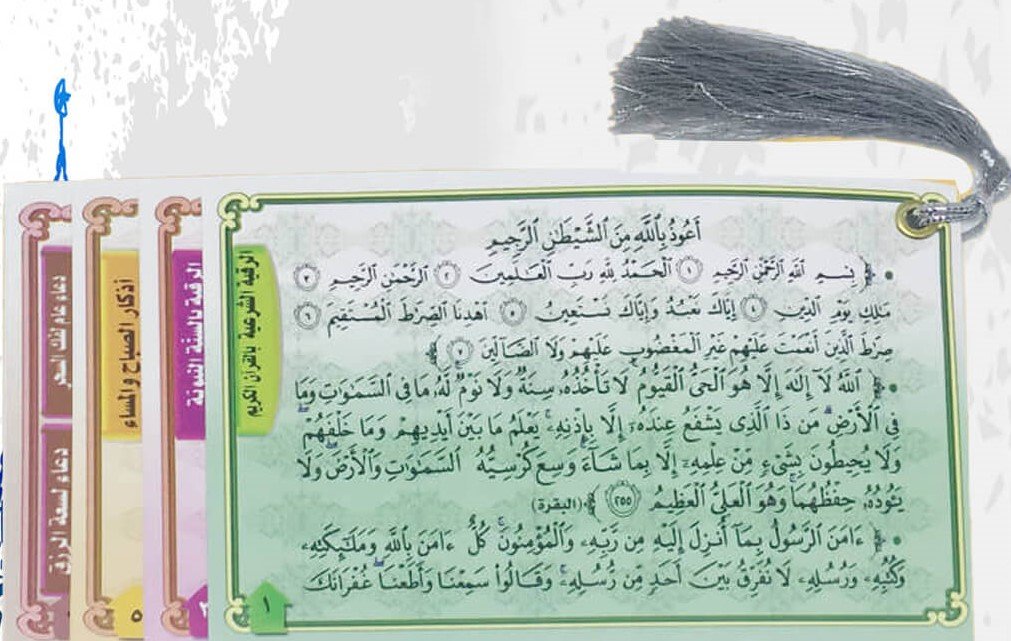 أَعُوذُ بِاللَّهِ مِنَ الشَّيْطَانِ الرَّجِيمِ
﴿ بِسْمِ ٱللَّهِ ٱلرَّحْمَٰنِ ٱلرَّحِيمِ ١ ٱلْحَمْدُ لِلَّهِ رَبِّ ٱلْعَٰلَمِينَ ٢ ٱلرَّحْمَٰنِ ٱلرَّحِيمِ ٣
مَٰلِكِ يَوْمِ ٱلدِّينِ ٤ إِيَّاكَ نَعْبُدُ وَإِيَّاكَ نَسْتَعِينُ ٥ ٱهْدِنَا ٱلصِّرَٰطَ ٱلْمُسْتَقِيمَ ٦
صِرَٰطَ ٱلَّذِينَ أَنْعَمْتَ عَلَيْهِمْ غَيْرِ ٱلْمَغْضُوبِ عَلَيْهِمْ وَلَا ٱلضَّآلِّينَ ٧ ﴾
﴿ ٱللَّهُ لَآ إِلَٰهَ إِلَّا هُوَ ٱلْحَىُّ ٱلْقَيُّومُ لَا تَأْخُذُهُۥ سِنَةٌ وَلَا نَوْمٌ لَّهُۥ مَا فِى ٱلسَّمَٰوَٰتِ وَمَا
فِى ٱلْأَرْضِ مَن ذَا ٱلَّذِى يَشْفَعُ عِندَهُۥٓ إِلَّا بِإِذْنِهِۦ يَعْلَمُ مَا بَيْنَ أَيْدِيهِمْ وَمَا خَلْفَهُمْ
وَلَا يُحِيطُونَ بِشَىْءٍ مِّنْ عِلْمِهِۦٓ إِلَّا بِمَا شَآءَ وَسِعَ كُرْسِيُّهُ ٱلسَّمَٰوَٰتِ وَٱلْأَرْضَ وَلَا
يَـُٔودُهُۥ حِفْظُهُمَا وَهُوَ ٱلْعَلِىُّ ٱلْعَظِيمُ ٢٥٥ ﴾ (البقرة)
﴿ ءَامَنَ ٱلرَّسُولُ بِمَآ أُنزِلَ إِلَيْهِ مِن رَّبِّهِۦ وَٱلْمُؤْمِنُونَ كُلٌّ ءَامَنَ بِٱللَّهِ وَمَلَٰٓئِكَتِهِۦ
وَكُتُبِهِۦ وَرُسُلِهِۦ لَا نُفَرِّقُ بَيْنَ أَحَدٍ مِّن رُّسُلِهِۦ وَقَالُوا۟ سَمِعْنَا وَأَطَعْنَا غُفْرَانَكَ
الرقية الشرعية بالقرآن الكريم
١
الرقية بالسنة النبوية
٣
أذكار الصباح والمساء
٥
دعاء عام لفك السحر
دعاء لسعة الرزق